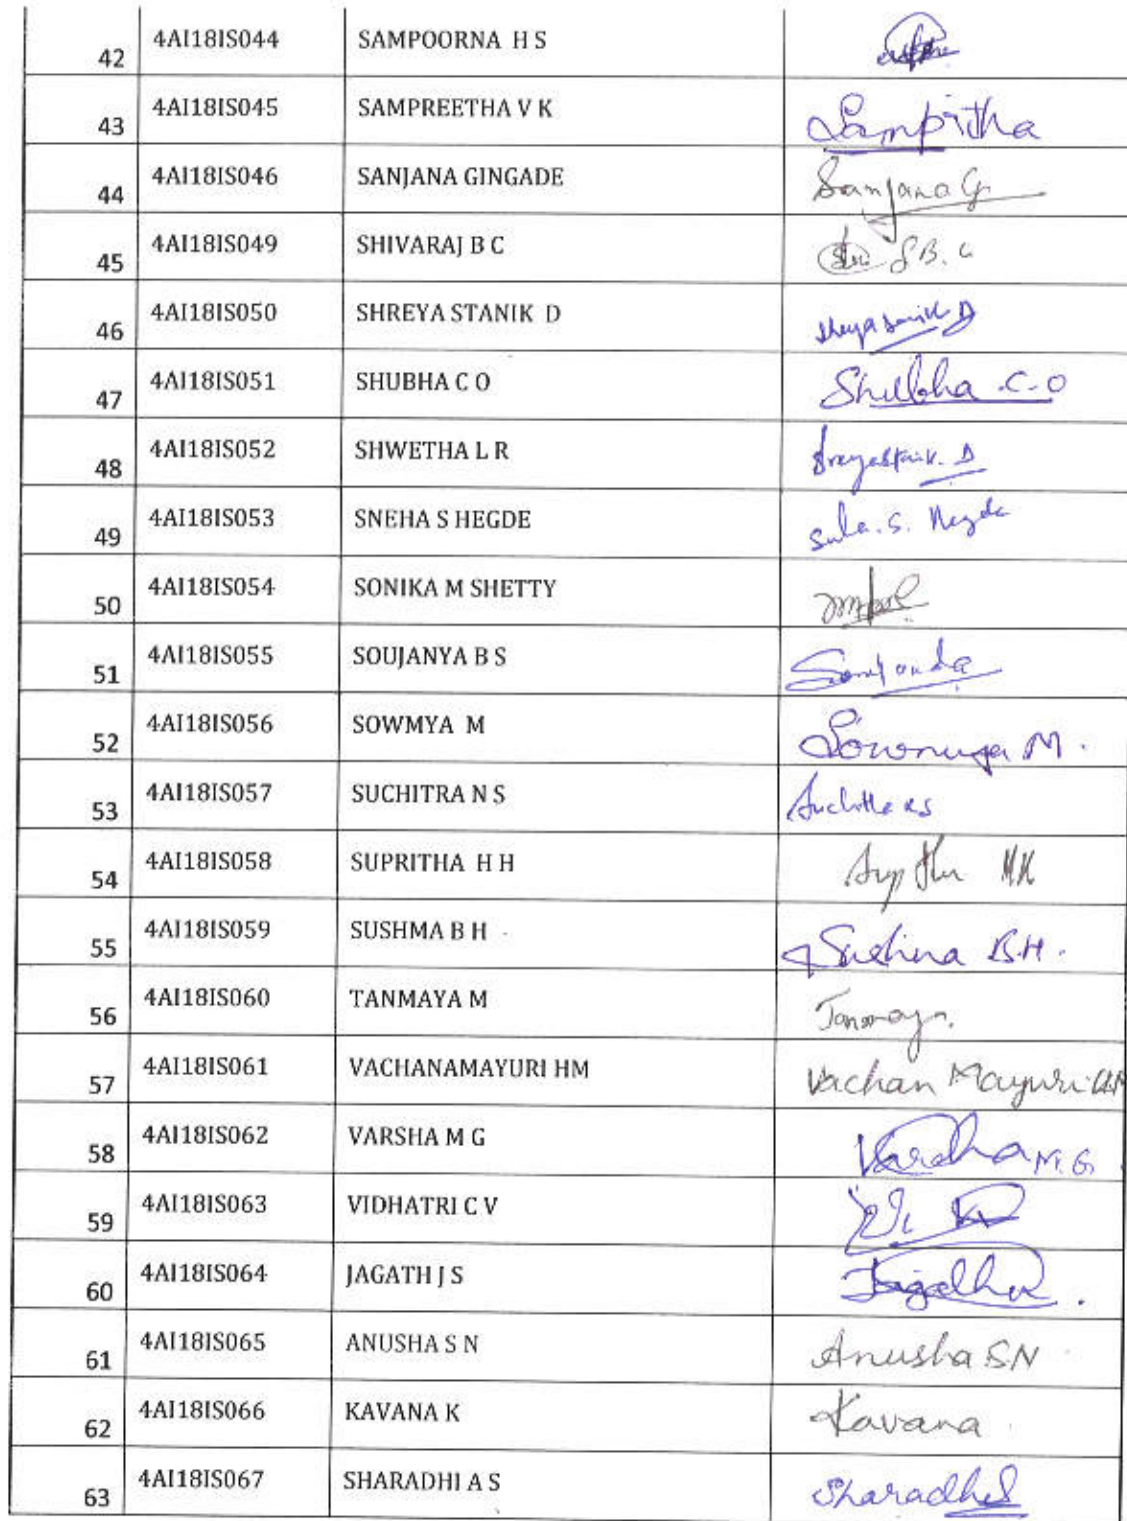 42 4AI18IS044 SAMPOORNA H S
43 4AI18IS045 SAMPREETHA V K Sampritha
44 4AI18IS046 SANJANA GINGADE Sanjana G
45 4AI18IS049 SHIVARAJ B C
46 4AI18IS050 SHREYA STANIK D
47 4AI18IS051 SHUBHA C O Shubha .C.O
48 4AI18IS052 SHWETHA L R
49 4AI18IS053 SNEHA S HEGDE
50 4AI18IS054 SONIKA M SHETTY
51 4AI18IS055 SOUJANYA B S
52 4AI18IS056 SOWMYA M Sowmya M.
53 4AI18IS057 SUCHITRA N S
54 4AI18IS058 SUPRITHA H H
55 4AI18IS059 SUSHMA B H B.H.
56 4AI18IS060 TANMAYA M Tanmaya.
57 4AI18IS061 VACHANAMAYURI HM Vachan Mayuri
58 4AI18IS062 VARSHA M G M.G
59 4AI18IS063 VIDHATRI C V
60 4AI18IS064 JAGATH J S
61 4AI18IS065 ANUSHA S N Anusha S.N
62 4AI18IS066 KAVANA K Kavana
63 4AI18IS067 SHARADHI A S